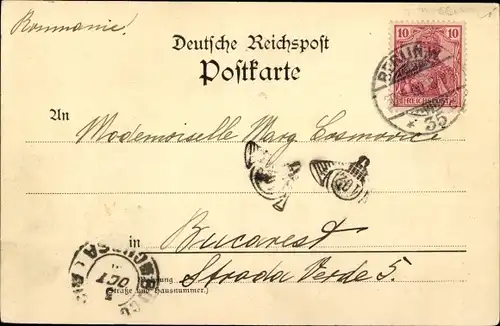 Roumanie.
10 10
Deutsche Reichspost
Postkarte
BERLIN, W
35
An
Mademoiselle Marg. Cosmovici
in Bucarest
Strada Verde 5.
(Straße und Hausnummer.)
OCT